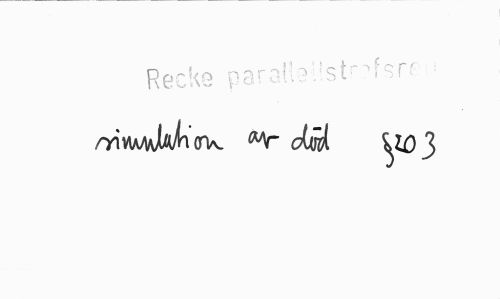 Recke parallellstrofsreg
simulation av död §20 3